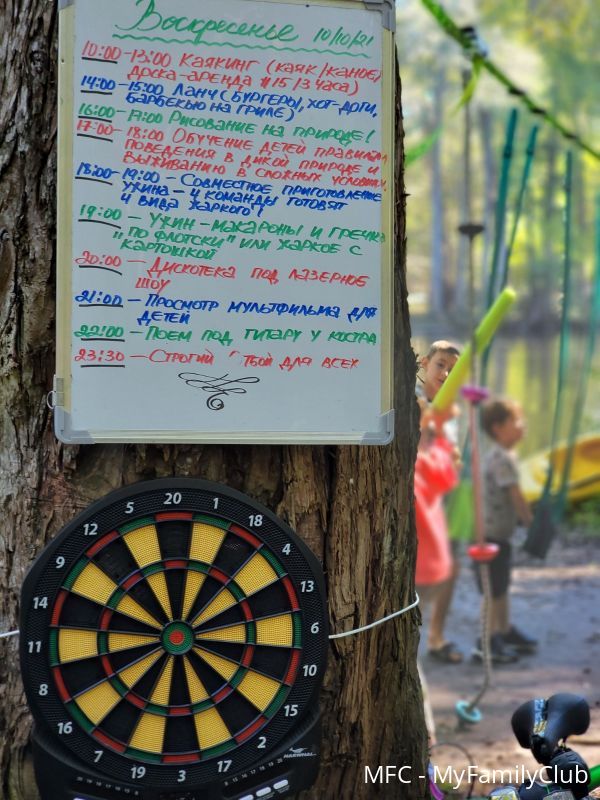 Воскресенье 10/10/21
10:00-13:00 Каякинг (каяк/каноэ/
доска-аренда $15/3 часа)
14:00-15:00 Ланч (бургеры, хот-доги,
барбекью на гриле)
16:00-17:00 Рисование на природе!
17:00-18:00 Обучение детей правилам
поведения в дикой природе и
выживанию в сложных условиях
18:00-19:00 - Совместное приготовление
ужина - 4 команды готовят
4 вида жаркого!
19:00 - Ужин - макароны и гречка
"по флотски" или жаркое с
картошкой
20:00 - Дискотека под лазерное
шоу
21:00 - Просмотр мультфильма для
детей
22:00 - Поем под гитару у костра
23:30 - Строгий тбой для всех
20 1 18 4 13 6 10 15 2 17 3 19 7 16 8 11 14 9 12 5
NARWHAL
MFC - MyFamilyClub